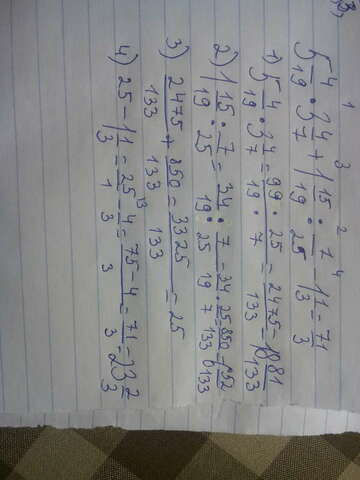 1 3 2 4
5 4/19 · 3 4/7 + 1 15/19 : 7/25 - 1 1/3 = 71/3
1) 5 4/19 · 3 4/7 = 99/19 · 25/7 = 2475/133 = 18 81/133
2) 1 15/19 : 7/25 = 34/19 : 7/25 = 34/19 · 25/7 = 850/133 = 6 52/133
3) 2475/133 + 850/133 = 3325/133 = 25
4) 25 - 1 1/3 = 25/1 - 4/3 = 75-4/3 = 71/3 = 23 2/3